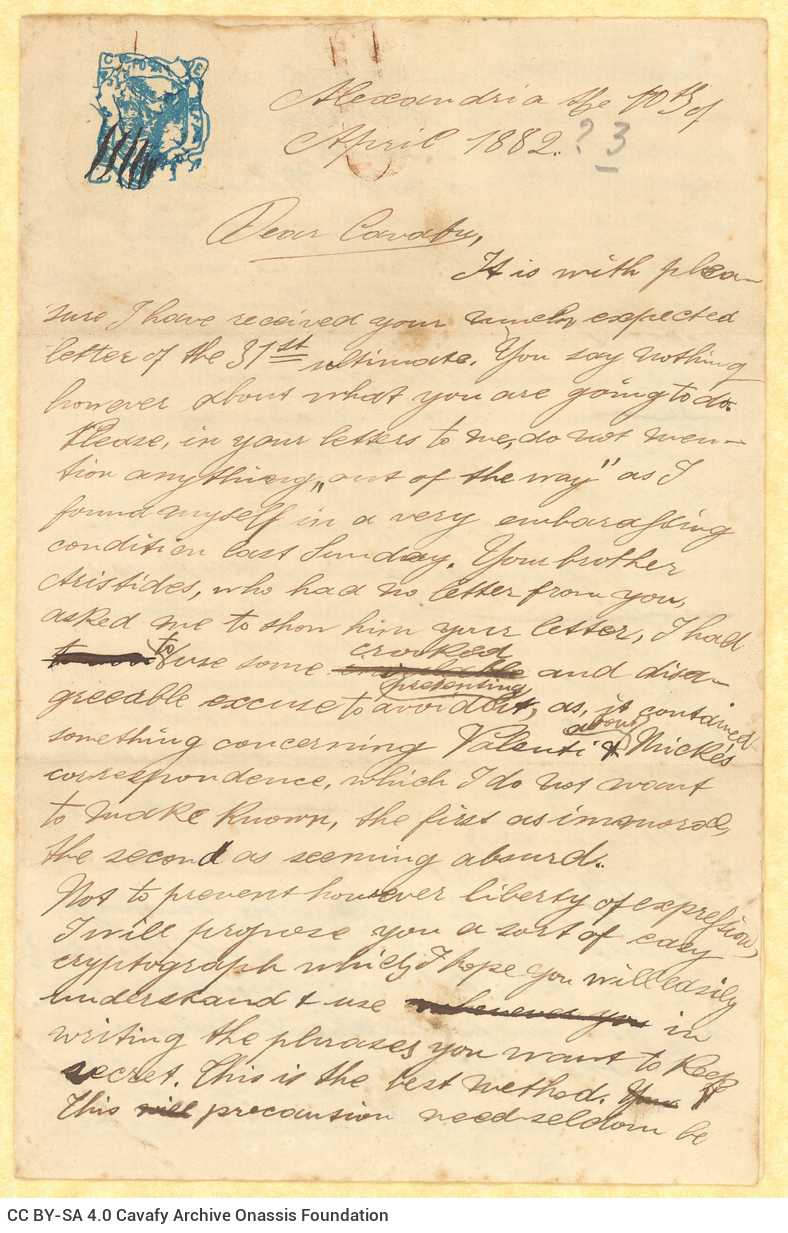 Alexandria the 10th of
April 1882. ? 3
Dear Cavafy,
It is with plea-
sure I have received your much expected
letter of the 31st ultimate. You say nothing
however about what you are going to do.
Please, in your letters to me, do not men-
tion anything „out of the way" as I
found myself in a very embarassing
condition last Sunday. Your brother
Aristides, who had no letter from you,
asked me to show him your letter, I had
to use some crooked and disa-
greeable excuse to avoid presenting it, as, it contained
something concerning Valenti & about Mické's
correspondence, which I do not want
to make known, the first as immoral,
the second as seeming absurd.
Not to prevent however liberty of expression,
I will propose you a sort of easy
cryptograph which I hope you will easily
understand & use whenever you in
writing the phrases you want to keep
secret. This is the best method. You
This will precaution need seldom be
CC BY-SA 4.0 Cavafy Archive Onassis Foundation